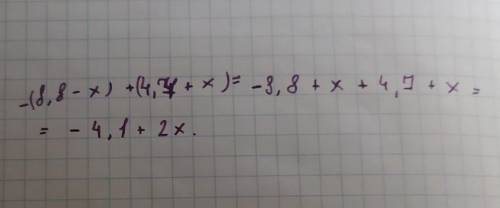 -(8,8 - x) + (4,7 + x) = -8,8 + x + 4,7 + x =
= - 4,1 + 2x.